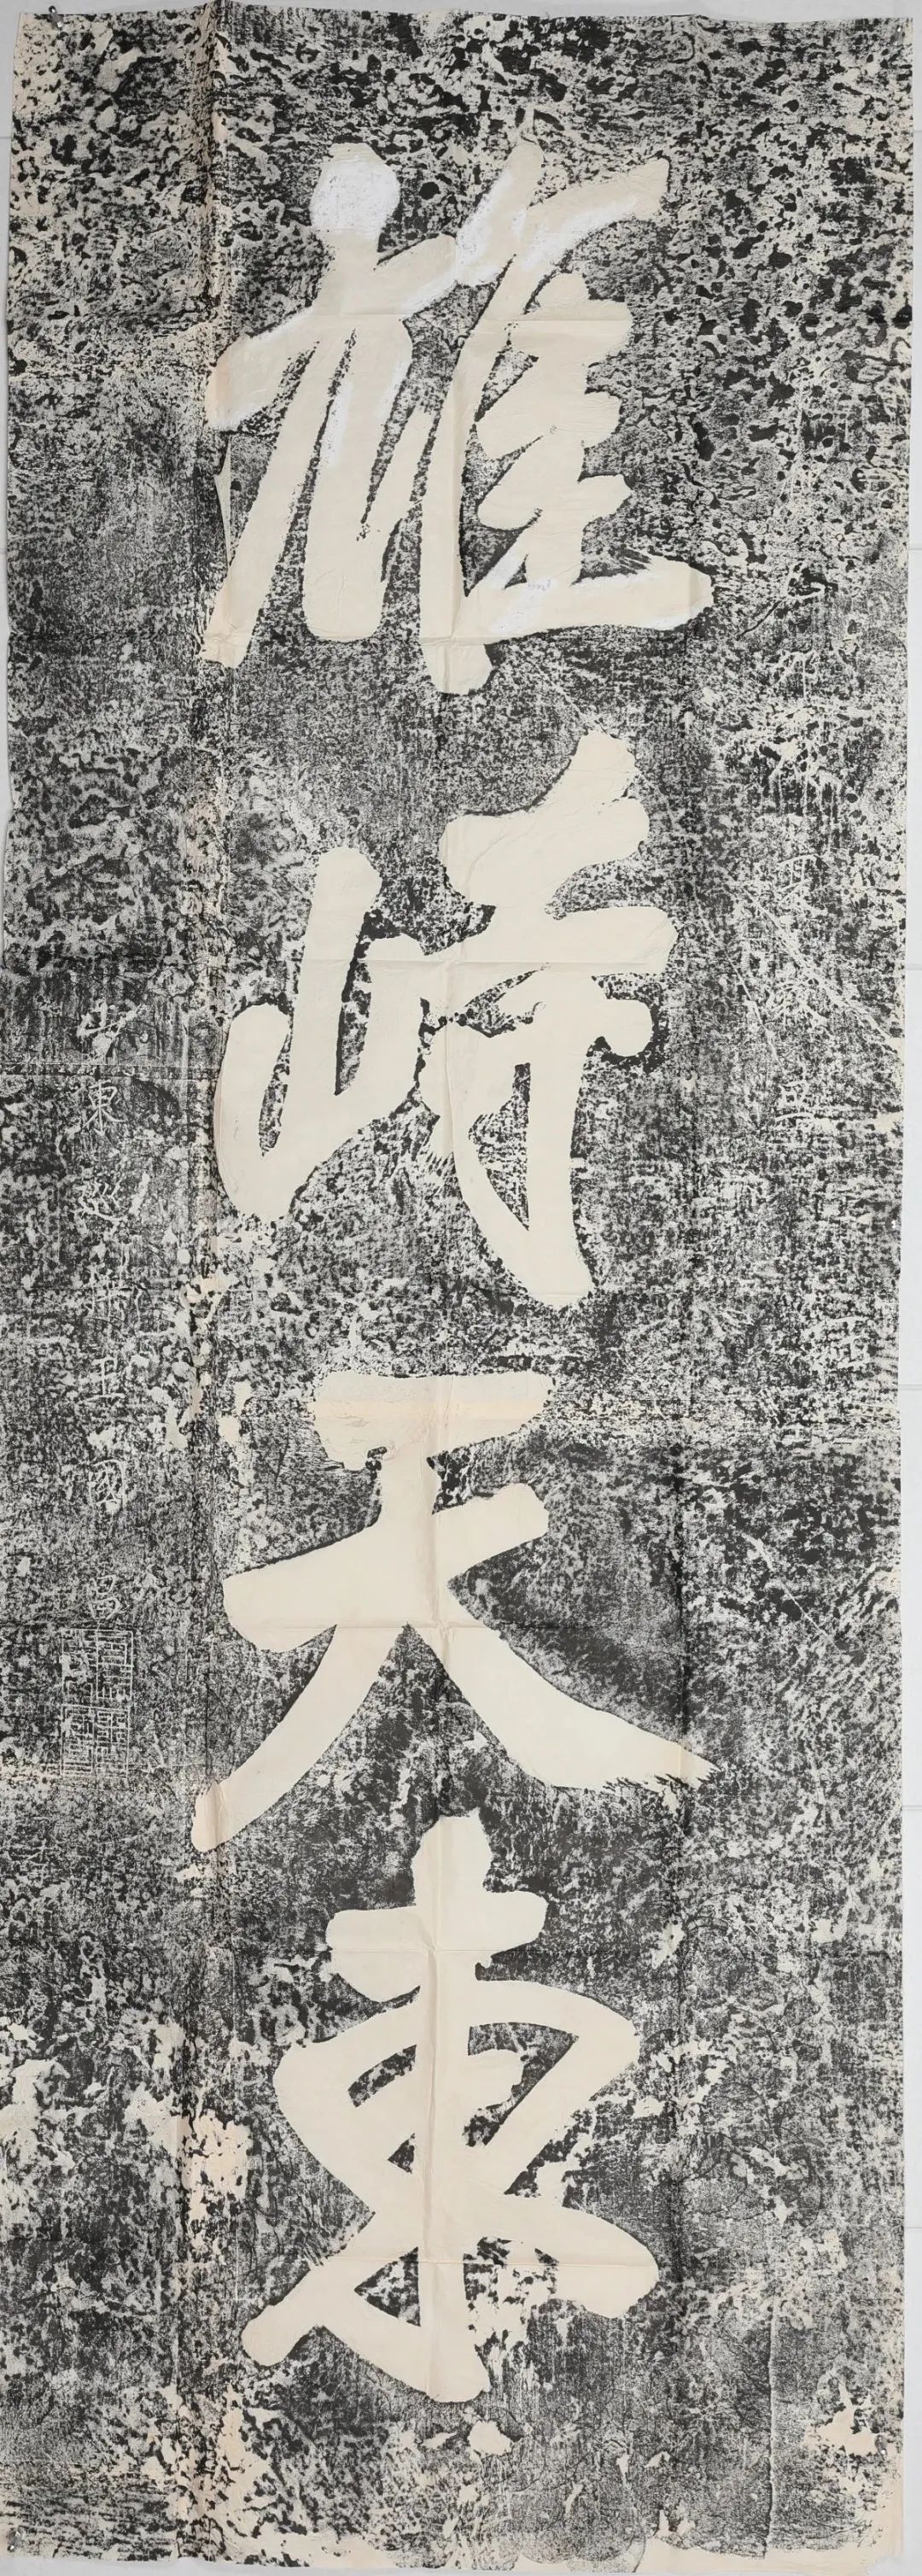 雄峙天東
山東巡撫王國昌